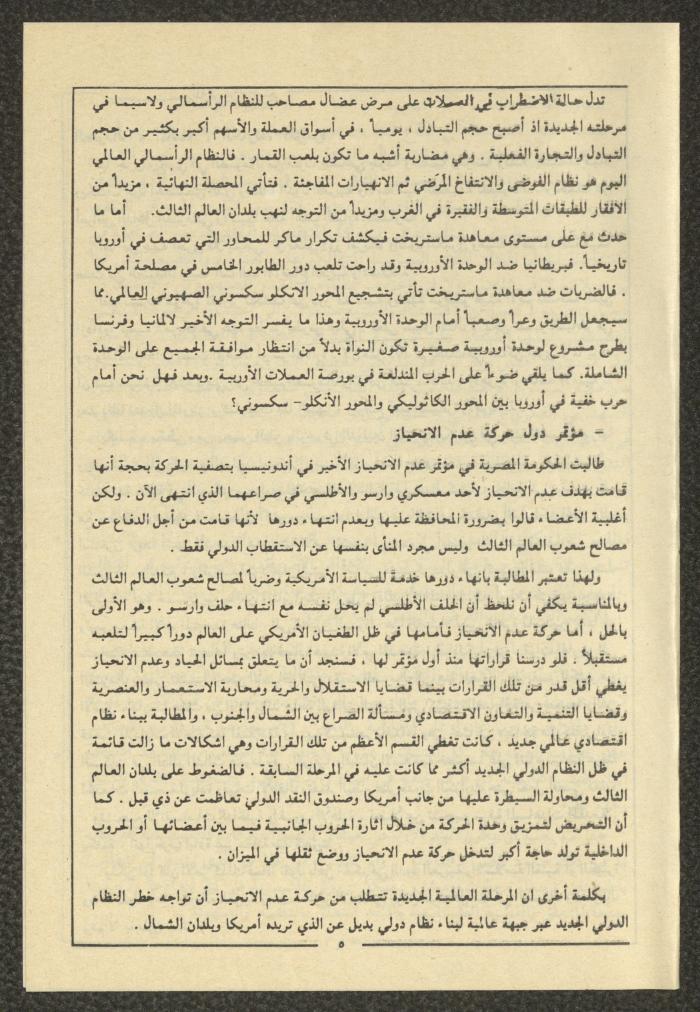 تدل حالة الاضطراب في العملات على مرض عضال مصاحب للنظام الرأسمالي ولاسيما في
مرحلته الجديدة اذ أصبح حجم التبادل ، يومياً ، في أسواق العملة والأسهم أكبر بكثير من حجم
التبادل والتجارة الفعلية . وهي مضاربة أشبه ما تكون بلعب القمار . فالنظام الرأسمالي العالمي
اليوم هو نظام الفوضى والانتفاخ المرَضي ثم الانهيارات المفاجئة . فتأتي المحصلة النهائية ، مزيداً من
الافقار للطبقات المتوسطة والفقيرة في الغرب ومزيداً من التوجه لنهب بلدان العالم الثالث. أما ما
حدث مع على مستوى معاهدة ماستريخت فيكشف تكرار ماكر للمحاور التي تعصف في أوروبا
تاريخياً. فبريطانيا ضد الوحدة الأوروبية وقد راحت تلعب دور الطابور الخامس في مصلحة أمريكا
. فالضربات ضد معاهدة ماستريخت تأتي بتشجيع المحور الانكلو سكسوني الصهيوني العالمي.مما
سيجعل الطريق وعراً وصعباً أمام الوحدة الأوروبية وهذا ما يفسر التوجه الأخير لالمانيا وفرنسا
بطرح مشروع لوحدة أوروبية صغيرة تكون النواة بدلاً من انتظار موافقة الجميع على الوحدة
الشاملة. كما يلقي ضوءاً على الحرب المندلعة في بورصة العملات الأوربية .وبعد فهل نحن أمام
حرب خفية في أوروبا بين المحور الكاثوليكي والمحور الأنكلو- سكسوني؟
- مؤتمر دول حركة عدم الانحياز
طالبت الحكومة المصرية في مؤتمر عدم الانحياز الأخير في أندونيسيا بتصفية الحركة بحجة أنها
قامت بهدف عدم الانحياز لأحد معسكري وارسو والأطلسي في صراعهما الذي انتهى الآن . ولكن
أغلبية الأعضاء قالوا بضرورة المحافظة عليها وبعدم انتهاء دورها لأنها قامت من أجل الدفاع عن
مصالح شعوب العالم الثالث وليس مجرد المنأى بنفسها عن الاستقطاب الدولي فقط .
ولهذا تعتبر المطالبة بانهاء دورها خدمة للسياسة الأمريكية وضرباً لمصالح شعوب العالم الثالث
وبالمناسبة يكفي أن نلحظ أن الحلف الأطلسي لم يحل نفسه مع انتهاء حلف وارسو . وهو الأولى
بالحل ، أما حركة عدم الانحياز فأمامها في ظل الطغيان الأمريكي على العالم دوراً كبيراً لتلعبه
مستقبلاً . فلو درسنا قراراتها منذ أول مؤتمر لها ، فسنجد أن ما يتعلق بمسائل الحياد وعدم الانحياز
يغطي أقل قدر من تلك القرارات بينما قضايا الاستقلال والحرية ومحاربة الاستعمار والعنصرية
وقضايا التنمية والتعاون الاقتصادي ومسألة الصراع بين الشمال والجنوب ، والمطالبة ببناء نظام
اقتصادي عالمي جديد ، كانت تغطي القسم الأعظم من تلك القرارات وهي اشكالات ما زالت قائمة
في ظل النظام الدولي الجديد أكثر مما كانت عليه في المرحلة السابقة . فالضغوط على بلدان العالم
الثالث ومحاولة السيطرة عليها من جانب أمريكا وصندوق النقد الدولي تعاظمت عن ذي قبل . كما
أن التحريض لتمزيق وحدة الحركة من خلال اثارة الحروب الجانبية فيما بين أعضائها أو الحروب
الداخلية تولد حاجة أكبر لتدخل حركة عدم الانحياز ووضع ثقلها في الميزان .
بكلمة أخرى ان المرحلة العالمية الجديدة تتطلب من حركة عدم الانحياز أن تواجه خطر النظام
الدولي الجديد عبر جبهة عالمية لبناء نظام دولي بديل عن الذي تريده أمريكا وبلدان الشمال .
٥